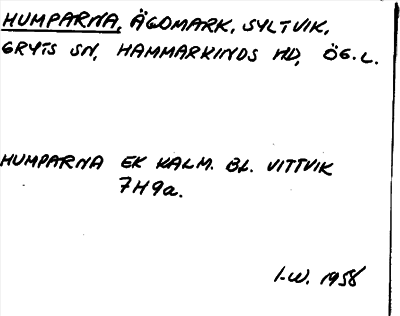 HUMPARNA, ÄGOMARK, SYLTVIK,
GRYTS SN, HAMMARKINDS HD, ÖG.L.
HUMPARNA EK KALM. BL. VITTVIK
7H9a.
I-W. 1958